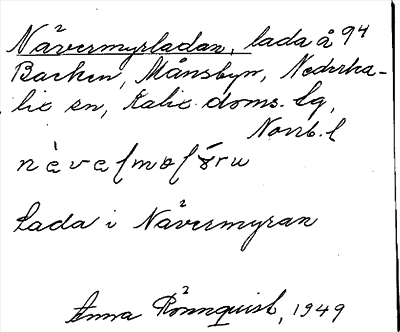 Nävermyrladan, lada å 94
Backen, Månsbyn, Nederka-
lix sn, Kalix doms. lg,
Norrb. l
Lada i Nävermyran
Anna Rönnquist, 1949